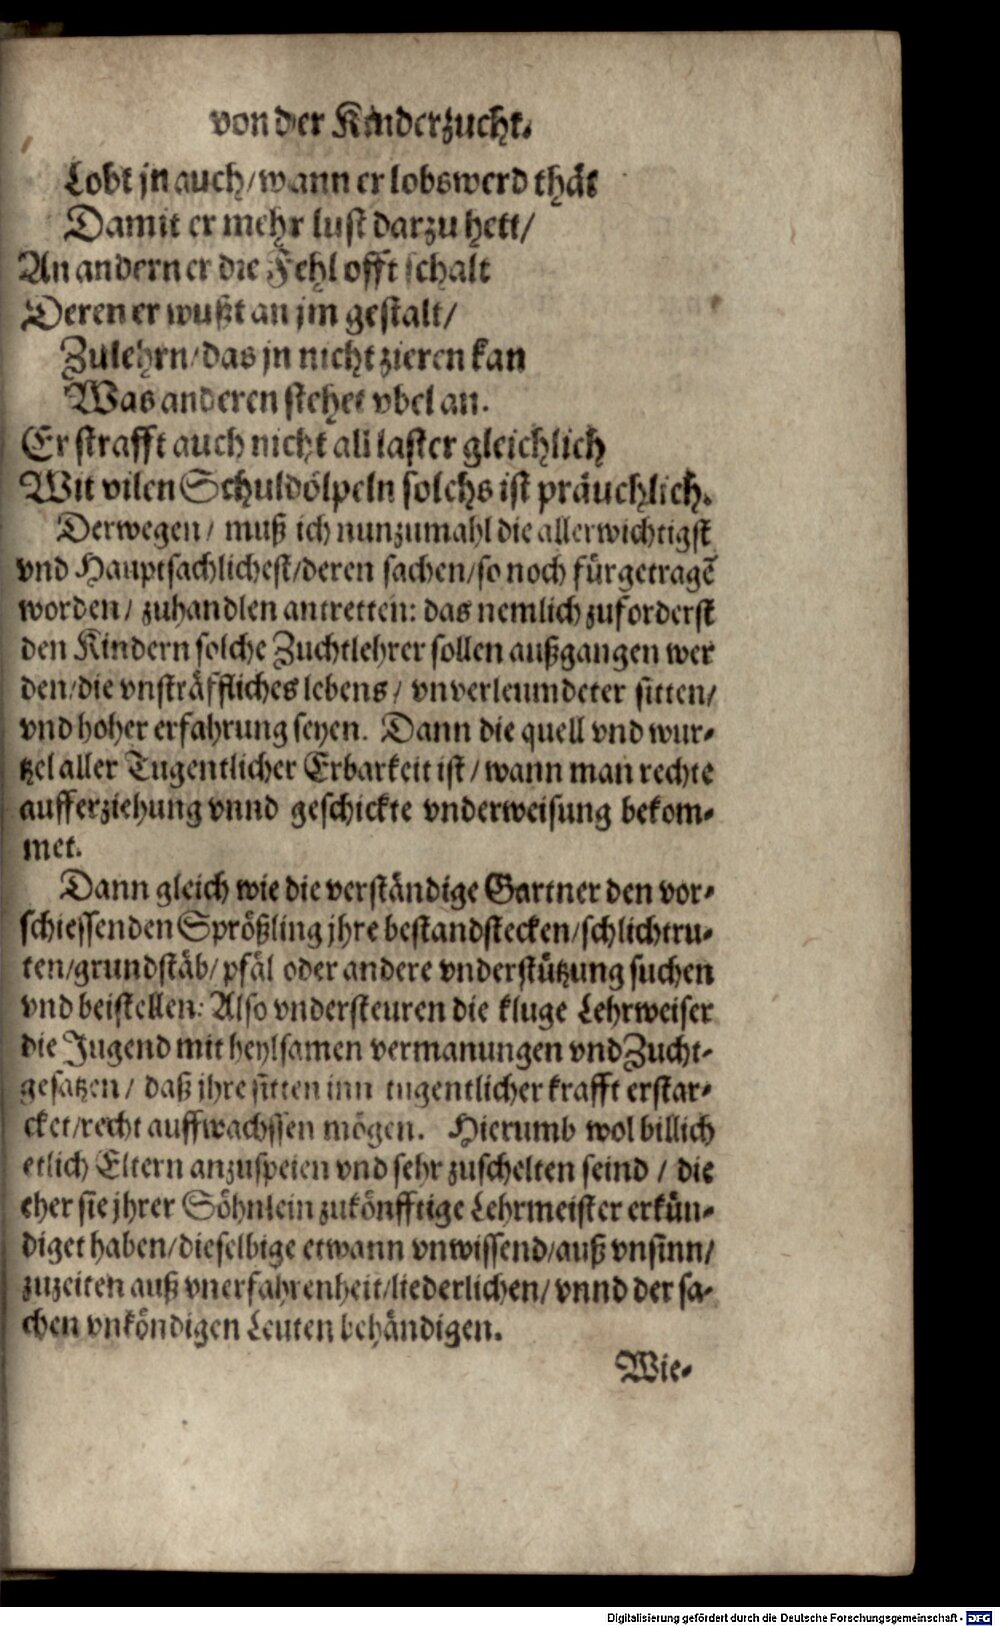 von der Kinderzucht.
Lobt jn auch/wann er lobswerd thät
Damit er mehr lust darzu hett/
An andern er die Fehl offt schalt
Deren er wußt an jm gestalt/
Zulehrn/das jn nicht zieren kan
Was anderen stehet vbel an.
Er strafft auch nicht all laster gleichlich
Wit vilen Schuldölpeln solchs ist präuchlich.
Derwegen/ muß ich nunzumahl die allerwichtigst
vnd Hauptsachlichest/deren sachen/so noch fürgetragẽ
worden/ zuhandlen antretten: das nemlich zuforderst
den Kindern solche Zuchtlehrer sollen außgangen wer
den/die vnsträffliches lebens/ vnverleumdeter sitten/
vnd hoher erfahrung seyen. Dann die quell vnd wur-
tzel aller Tugentlicher Erbarkeit ist/wann man rechte
aufferziehung vnnd geschickte vnderweisung bekom-
met.
Dann gleich wie die verständige Gartner den vor-
schiessenden Sprößling jhre bestandstecken/schlichtru-
ten/grundstäb/pfäl oder andere vnderstützung suchen
vnd beistellen: Also vndersteuren die kluge Lehrweiser
die Jugend mit heylsamen vermanungen vnd Zucht-
gesatzen/ daß jhre sitten inn tugentlicher krafft erstar-
cket/recht auffwachssen mögen. Hierumb wol billich
etlich Eltern anzuspeien vnd sehr zuschelten seind/ die
eher sie jhrer Söhnlein zukönfftige Lehrmeister erkün-
diget haben/dieselbige etwann vnwissend/auß vnsinn/
zuzeiten auß vnerfahrenheit/liederlichen/ vnnd der sa-
chen vnköndigen Leuten behändigen.
Wie-
Digitalisierung gefördert durch die Deutsche Forschungsgemeinschaft - DFG